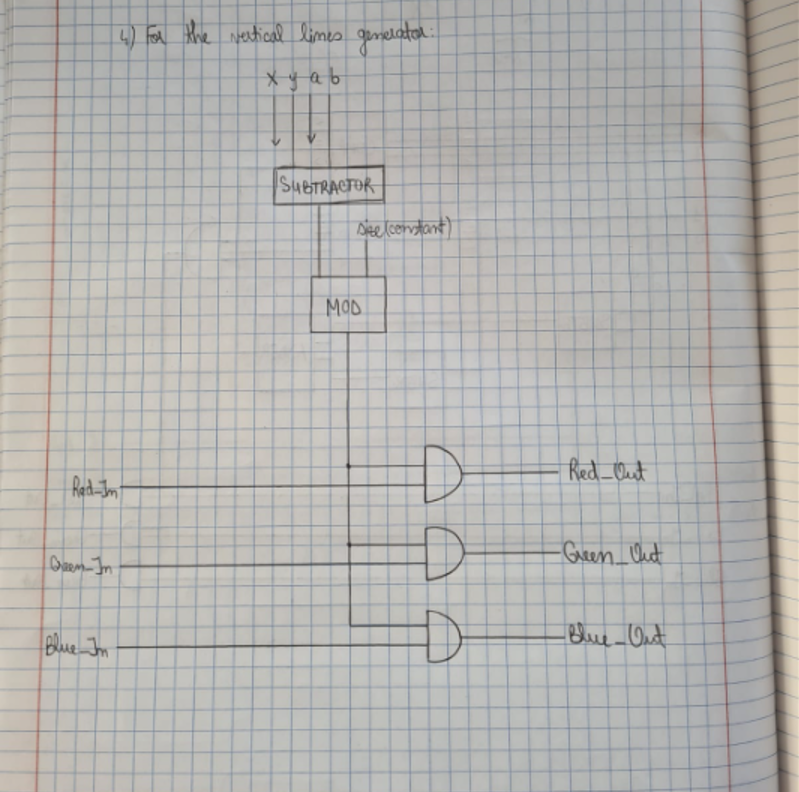 4) For the vertical lines generator:
x y a b
SUBTRACTOR
size(constant)
MOD
Red_In
Red_Out
Green_In
Green_Out
Blue_In
Blue_Out